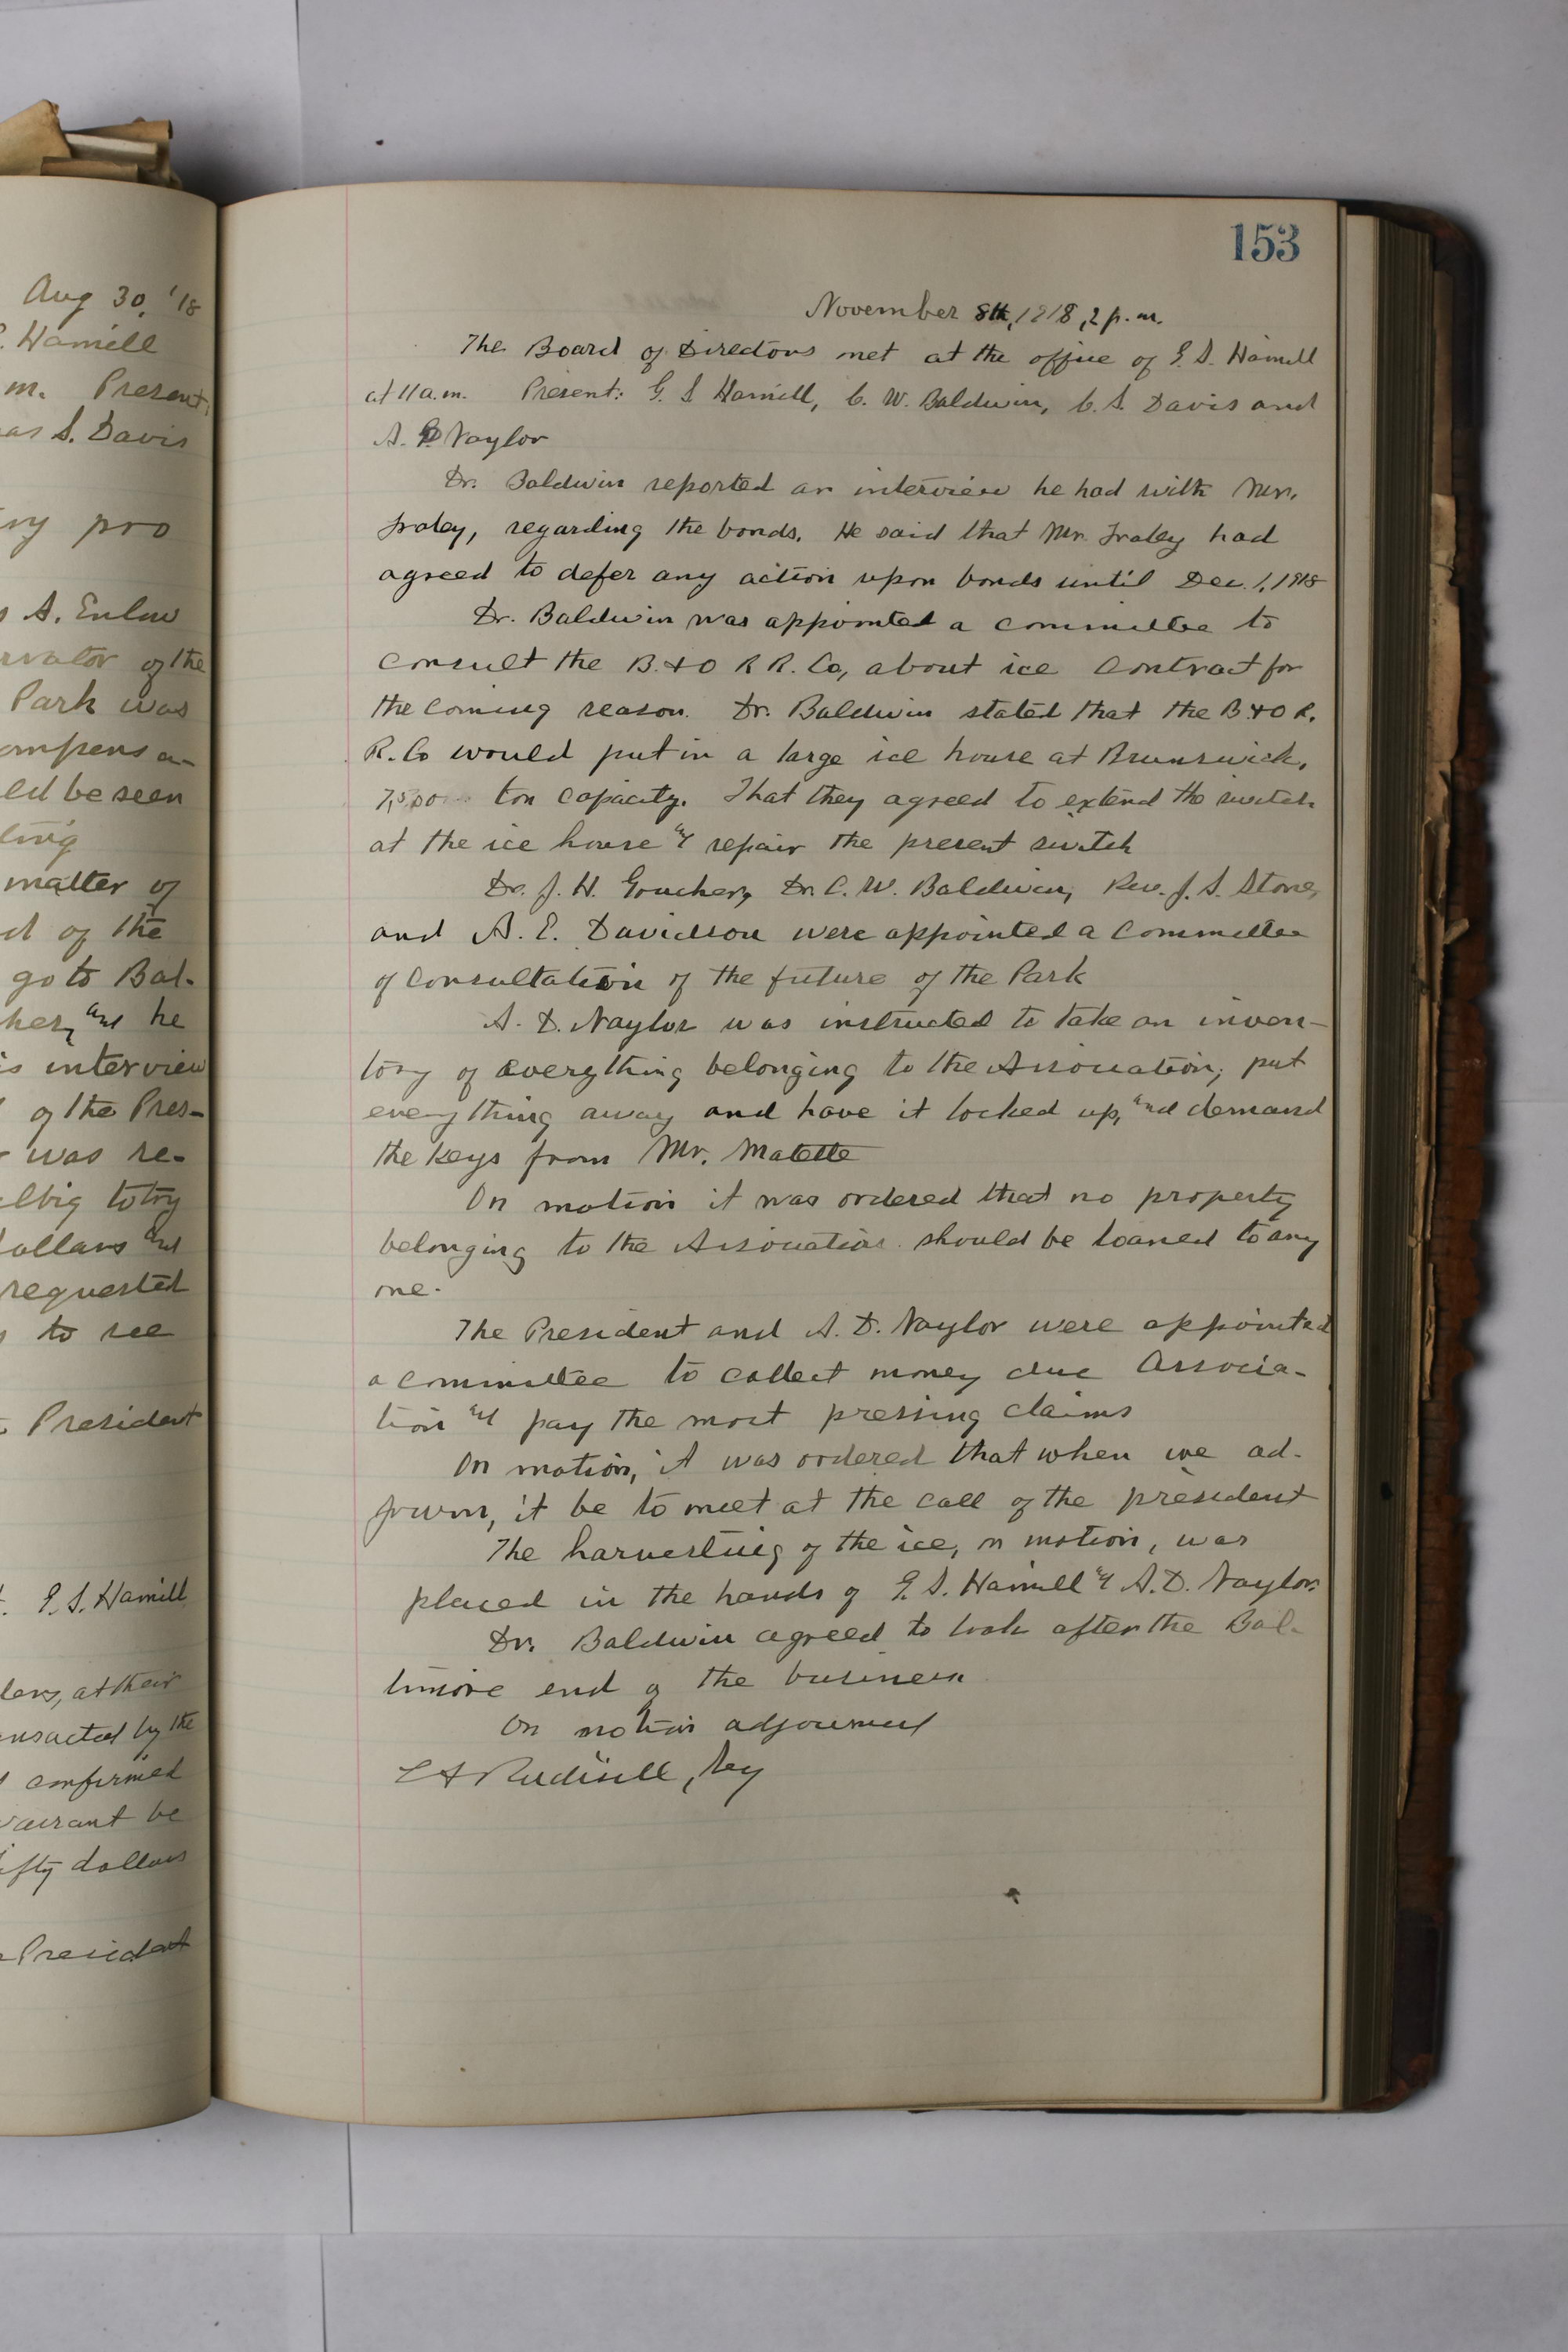 Aug 30, '18
. Hamill
m. Present,
as S. Davis
pro
A. Enlow
rvator of the
Park was
ompensa-
ld be seen
ling
matter of
d of the
go to Bal-
her, and he
is interview
of the Pres-
was re-
lbig to try
dollars and
requested
to see
President
G. S. Hamill
lers, at their
ansacted by the
confirmed
warrant be
ifty dollars
President
153
November 8th, 1918, 2 p.m.
The Board of Directors met at the office of G. S. Hamill
at 11 a.m. Present: G. S Hamill, C. W. Baldwin, C. S. Davis and
A. D Naylor
Dr. Baldwin reported an interview he had with Mr.
Fraley, regarding the bonds. He said that Mr. Fraley had
agreed to defer any action upon bonds until Dec. 1, 1918
Dr. Baldwin was appointed a committee to
consult the B. & O R R. Co, about ice contract for
the coming season. Dr. Baldwin stated that the B. & O R.
R. Co would put in a large ice house at Brunswick,
7,500 ton capacity. That they agreed to extend the switch
at the ice house & repair the present switch
Dr. J. H. Goucher, Dr. C. W. Baldwin, Rev. J. S. Stone,
and A. E. Davidson were appointed a committee
of consultation of the future of the Park
A. D. Naylor was instructed to take an inven-
tory of everything belonging to the Association, put
everything away and have it locked up, and demand
the keys from Mr. Matette
On motion it was ordered that no property
belonging to the Association should be loaned to any
one.
The President and A. D. Naylor were appointed
a committee to collect money due Associa-
tion and pay the most pressing claims
On motion, it was ordered that when we ad-
journ, it be to meet at the call of the president
The harvesting of the ice, on motion, was
placed in the hands of G. S. Hamill & A. D. Naylor.
Dr. Baldwin agreed to look after the Bal-
timore end of the business
On motion adjourned
Rudisill, Sey